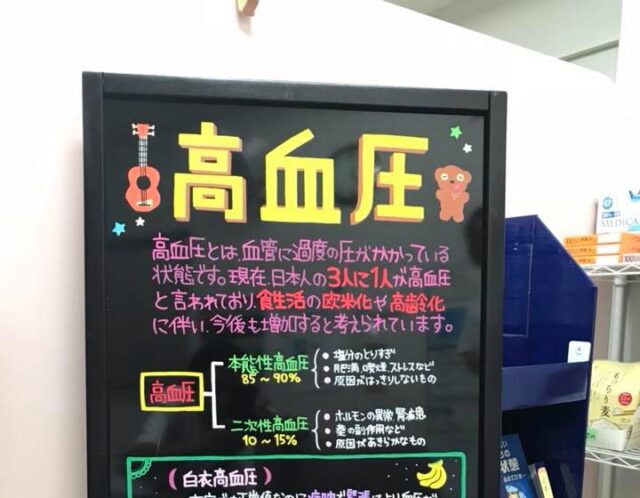 高血圧
高血圧とは、血管に過度の圧がかかっている
状態です。現在、日本人の3人に1人が高血圧
と言われており、食生活の欧米化や高齢化
に伴い、今後も増加すると考えられています。
高血圧
本態性高血圧
85~90%
・塩分のとりすぎ
・肥満、喫煙、ストレスなど
・原因がはっきりしないもの
二次性高血圧
10~15%
・ホルモンの異常、腎疾患
・薬の副作用など
・原因があきらかなもの
(白衣高血圧)
MEDICA
もち麦
状態